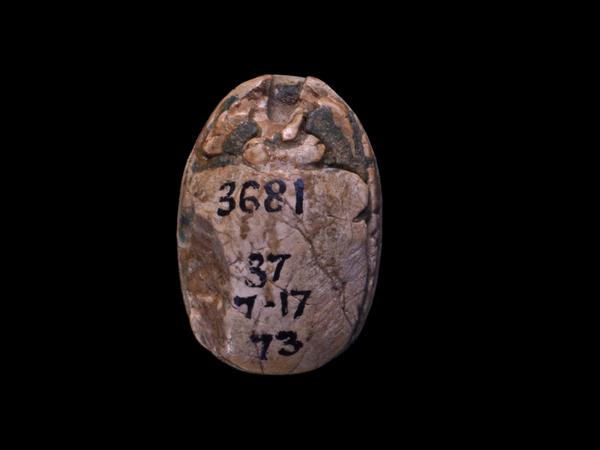 3681
37
7-17
73